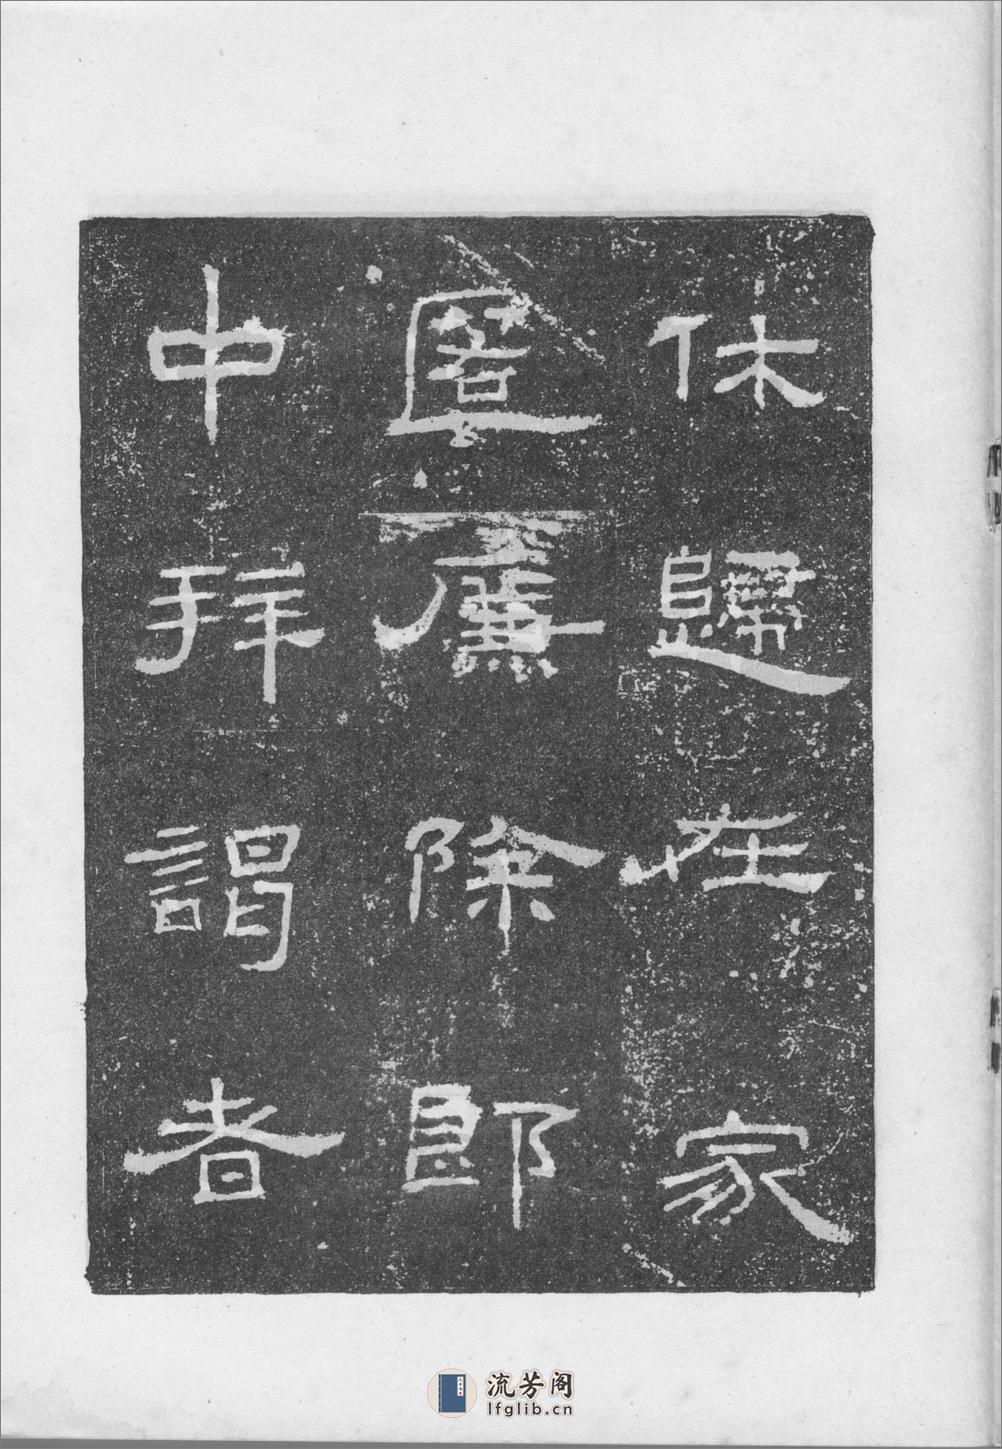 休歸在家
匿廉除郎
中拜謁者
流芳阁
lfglib.cn